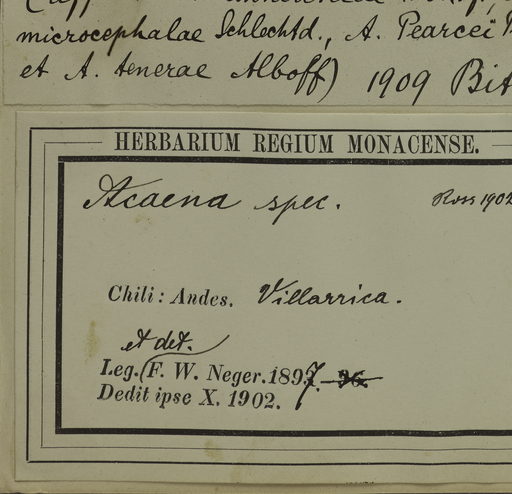 microcephalae Schlechtd., A. Pearcei
et A. tenerae Alboff) 1909 Bit
HERBARIUM REGIUM MONACENSE.
Acaena spec. Ross 1902
Chili: Andes. Villarrica.
et det.
Leg. (F. W. Neger. 1897. 96.
Dedit ipse X. 1902.